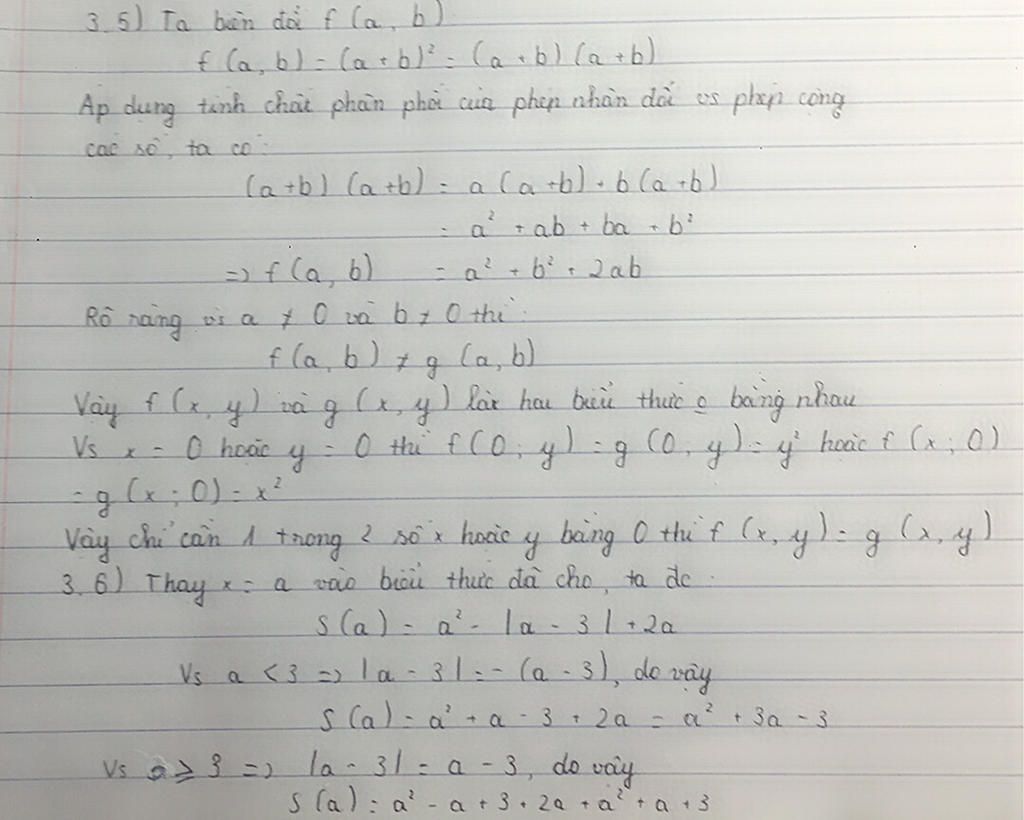 3.5) Ta biến đổi f (a, b)
f (a, b) = (a + b)² = (a + b) (a + b)
Áp dụng tính chất phân phối của phép nhân đối vs phép cộng
các số, ta có:
(a + b) (a + b) = a (a + b) + b (a + b)
= a² + ab + ba + b²
=> f (a, b) = a² + b² + 2ab
Rõ ràng vs a ≠ 0 và b ≠ 0 thì:
f (a, b) ≠ g (a, b)
Vậy f (x, y) và g (x, y) là hai biểu thức o bằng nhau
Vs x = 0 hoặc y = 0 thì f (0; y) = g (0, y) = y² hoặc f (x; 0)
= g (x; 0) = x²
Vậy chỉ cần 1 trong 2 số x hoặc y bằng 0 thì f (x, y) = g (x, y)
3.6) Thay x = a vào biểu thức đã cho, ta đc:
S (a) = a² - |a - 3| + 2a
Vs a < 3 => |a - 3| = - (a - 3), do vậy
S (a) = a² + a - 3 + 2a = a² + 3a - 3
Vs a ≥ 3 => |a - 3| = a - 3, do vậy
S (a) = a² - a + 3 + 2a + a² + a + 3